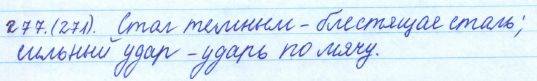 277.(271). Стал темным – блестящая сталь;
сильный удар – ударь по мячу.